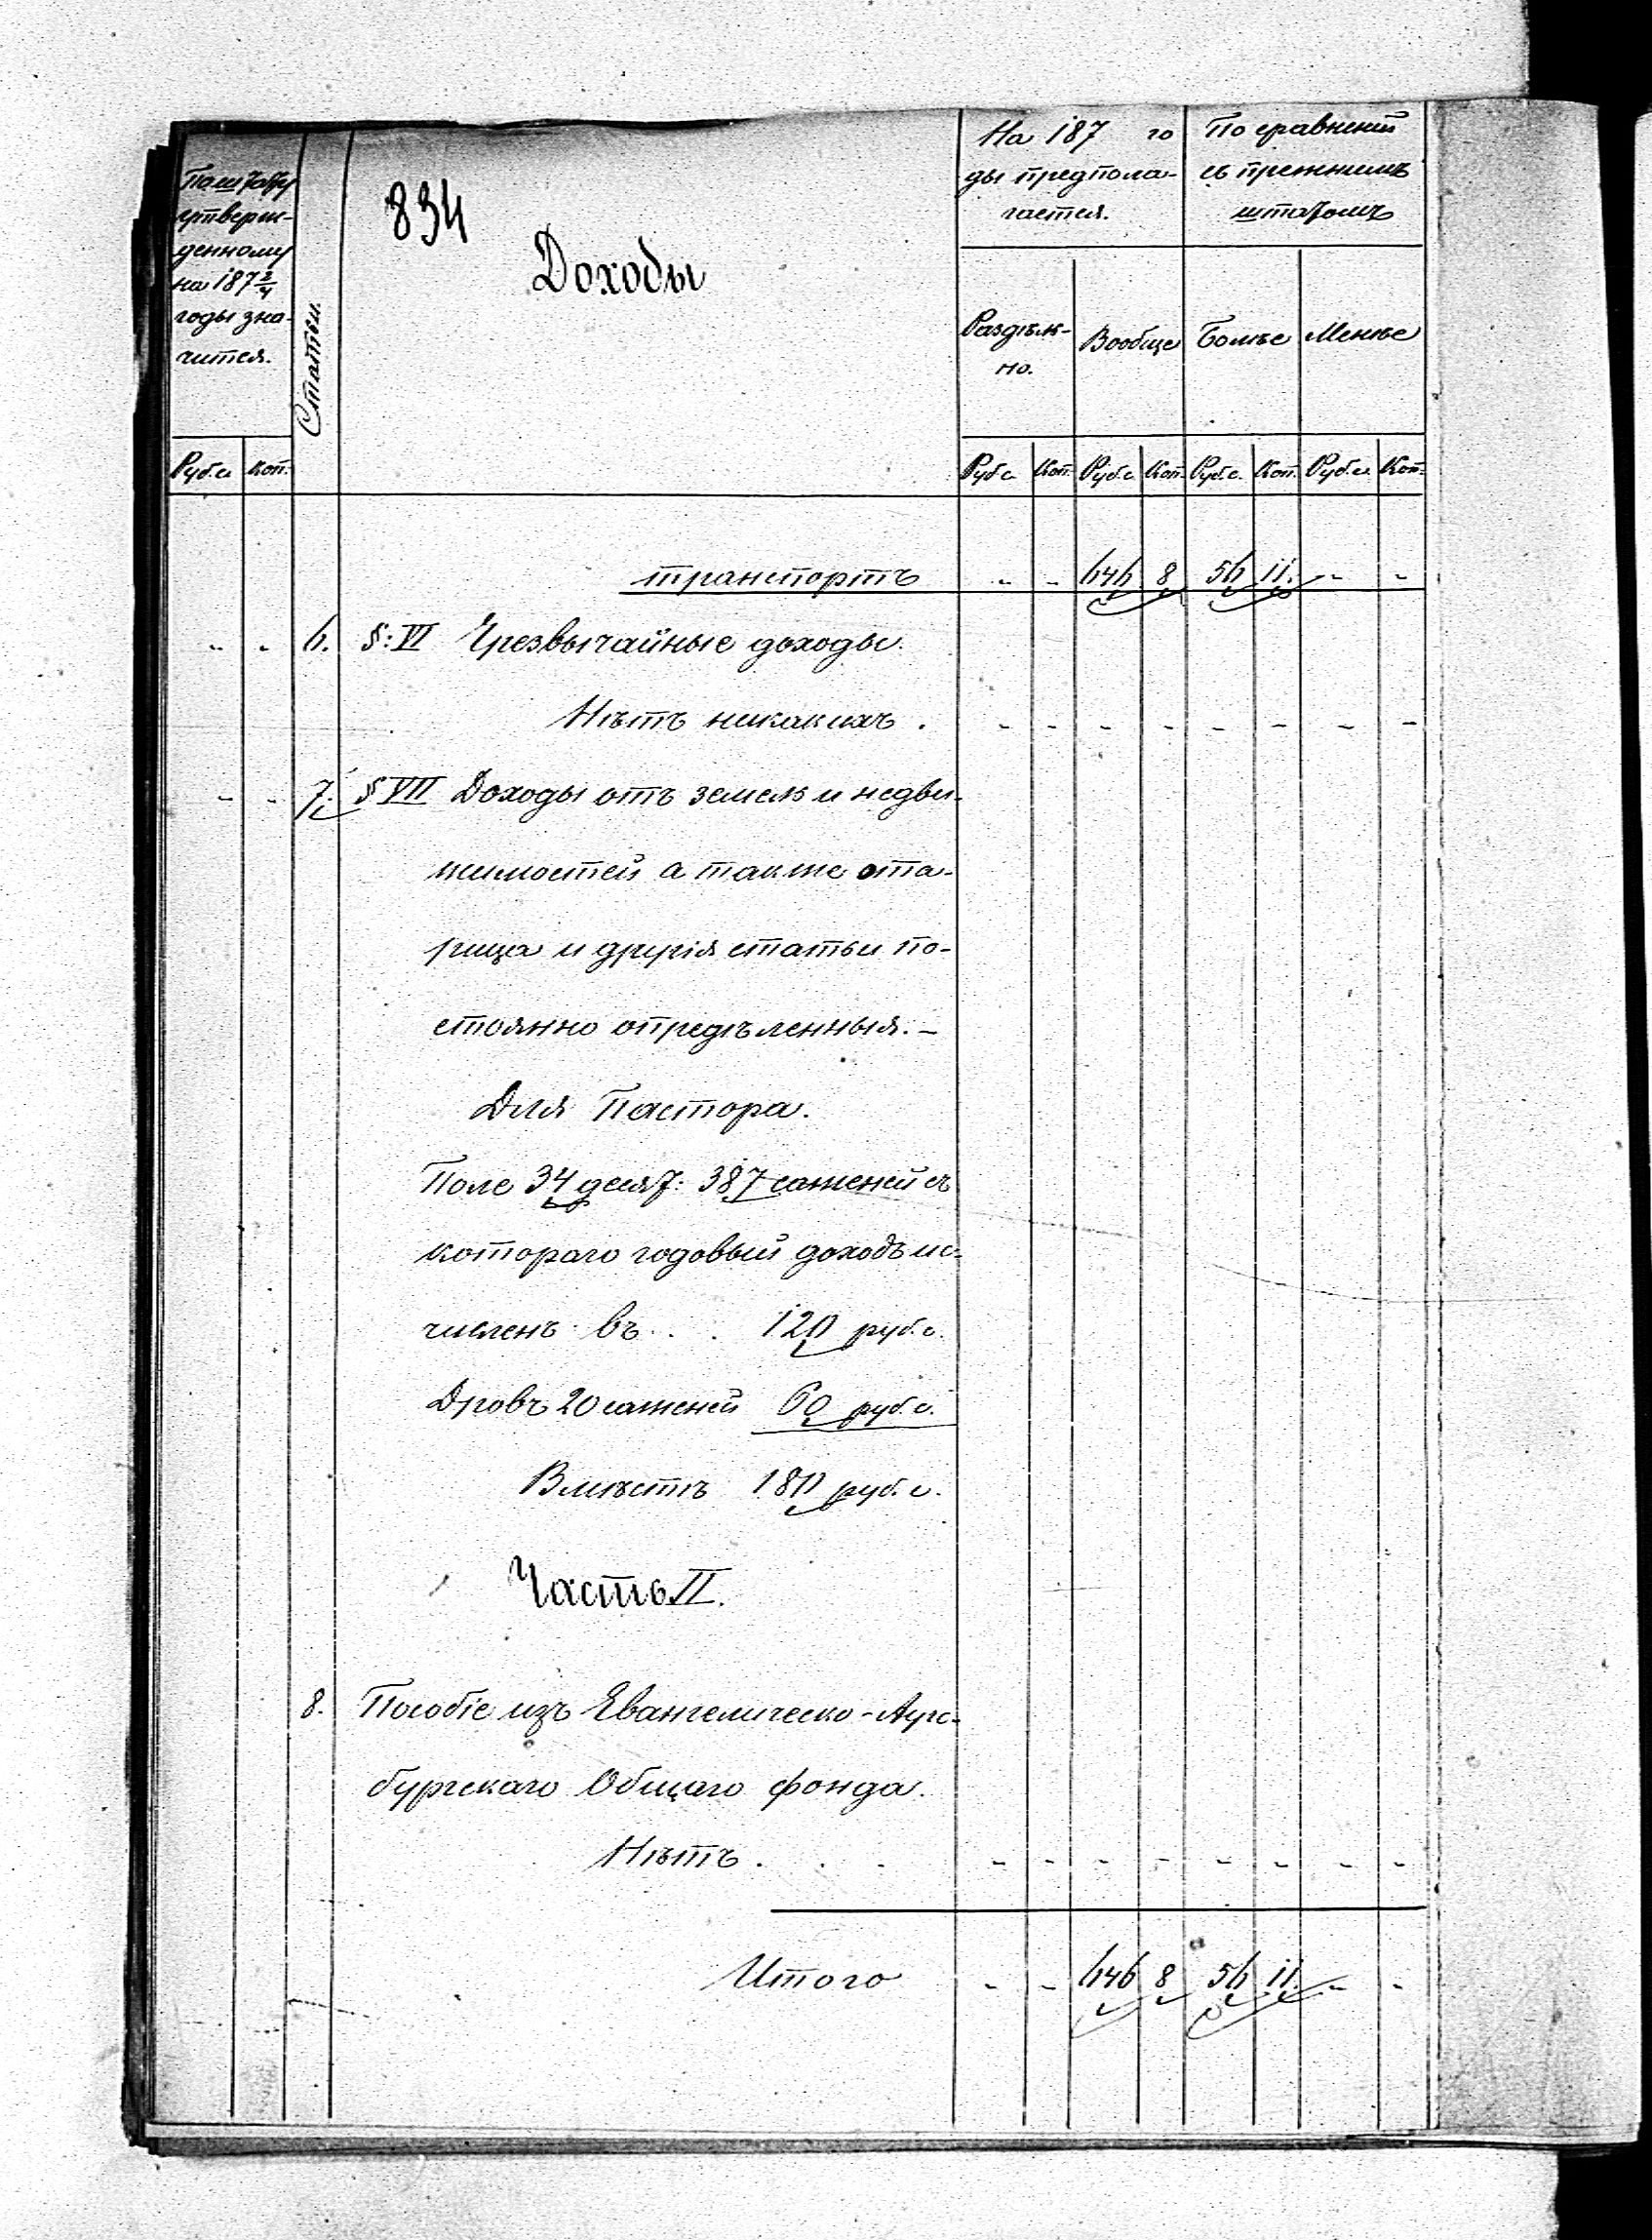 834
По штату
утверж-
денному
на 187 2/4
годы зна-
чится.
Статьи.
Доходы
На 187 го
ды предпола-
гается.
По сравненію
съ прежнимъ
штатомъ
Раздѣль-
но.
Вообще
Болѣе
Менѣе
Руб.с. Коп. Руб.с. Коп. Руб.с. Коп. Руб.с. Коп. Руб.с. Коп.
транспортъ - - 646 8 56 11. - -
- - 6. §: VI Чрезвычайные доходы.
Нѣтъ никакихъ . - - - - - - - -
- - 7. § VII Доходы отъ земель и недви-
жимостей а также ота-
рица и другія статьи по-
стоянно опредѣленныя. -
Для Пастора.
Поле 34 десят: 387 саженей съ
котораго годовый доходъ ис-
численъ въ . . 120 руб.с.
Дровъ 20 саженей 60 руб.с.
Вмѣстѣ 180 руб.с.
Часть II.
8. Пособіе изъ Евангелическо-Аугс-
бургскаго Общаго фонда.
Нѣтъ . . . - - - - - - - -
Итого - - 646 8 56 11. - -